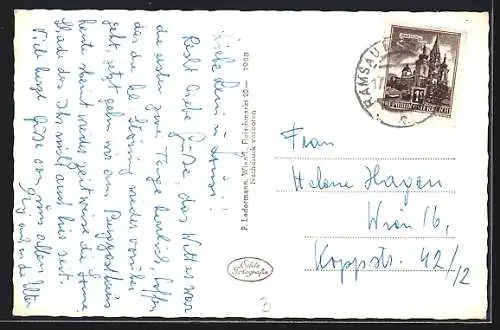 Liebe Leni u. Luisi!
Recht liebe Grüße, das Wetter war
die ersten zwei Tage herrlich, hoffe
das die Störung wieder vorüber
geht, jetzt gehn wir am
heute scheint wieder zeitweise die Sonne.
Schade das Ihr nicht auch hier seit.
Viele Grüße von uns allen
auch an die
F. Ledermann, Wien I., Fleischmarkt 20 — 1008
Nachdruck verboten
Echte
Fotografie
RAMSAU
17
REPUBLIK ÖSTERREICH
Frau
Helene Hagen
Wien 16,
Koppstr. 42/12
3